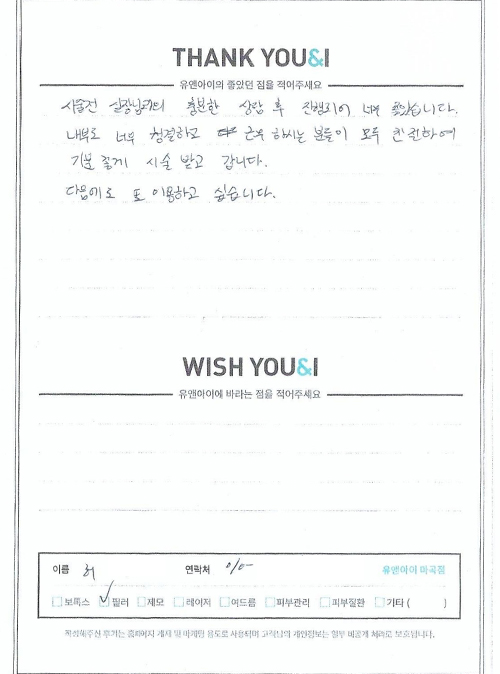 THANK YOU&I
유앤아이의 좋았던 점을 적어주세요
시술전 실장님과의 충분한 상담 후 진행되어 너무 좋았습니다.
내부도 너무 청결하고 근무 하시는 분들이 모두 친절하여
기분 좋게 시술 받고 갑니다.
다음에도 또 이용하고 싶습니다.
WISH YOU&I
유앤아이에 바라는 점을 적어주세요
이름 허 연락처 010- 유앤아이 마곡점
보톡스 필러 제모 레이저 여드름 피부관리 피부질환 기타 ( )
작성해주신 후기는 홈페이지 게재 및 마케팅 용도로 사용되며 고객님의 개인정보는 일부 비공개 처리로 보호됩니다.